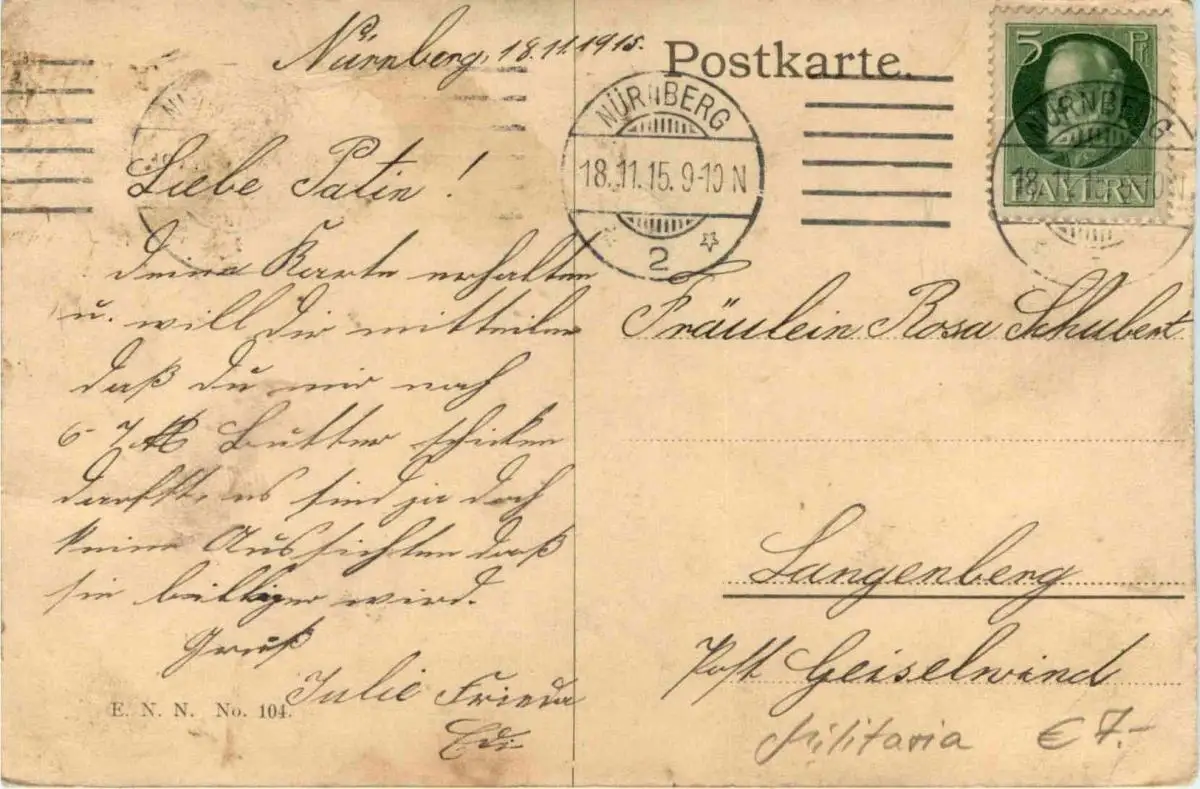 Nürnberg, 18.11.1915.
Postkarte.
5 Pf
BAYERN
NÜRNBERG
18.11.15. 9-10 N
2
NÜRNBERG
18.11.15. 9-10 N
Liebe Patin!
deine Karte erhalten
u. will dir mitteilen
daß du mir noch
6-7 ℔ Butter schicken
darfst, es sind ja doch
keine Aussichten daß
sie billiger wird.
Gruß
Julie Frieda
Edi
E. N. N. No. 104.
Fräulein Rosa Schubert
Langenberg
Post Geiselwind
Militaria € 7.-